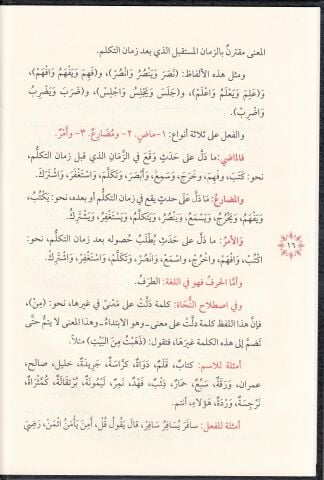 المعنى مقترنٌ بالزمان المستقبل الذي بعد زمان التكلم.
ومثل هذه الألفاظ: (نَصَرَ وَيَنْصُرُ وَانْصُرْ)، و(فَهِمَ وَيَفْهَمُ وَافْهَمْ)،
و(عَلِمَ وَيَعْلَمُ وَاعْلَمْ)، و(جَلَسَ وَيَجْلِسُ وَاجْلِسْ)، و(ضَرَبَ وَيَضْرِبُ
وَاضْرِبْ).
والفعل على ثلاثة أنواع: ١- ماضٍ. ٢- ومُضَارِعٌ. ٣- وأَمْرٌ.
فالماضي: مَا دَلَّ على حَدَثٍ وَقَعَ في الزَّمَانِ الذي قبل زمان التكلُّم،
نحو: كَتَبَ، وفَهِمَ، وخَرَجَ، وَسَمِعَ، وَأَبْصَرَ، وَتَكَلَّمَ، وَاسْتَغْفَرَ، وَاشْتَرَكَ.
والمضارعُ: مَا دَلَّ عَلَى حَدَثٍ يقع في زمان التكلُّم أو بعده، نحو: يَكْتُبُ،
وَيَفْهَمُ، وَيَخْرُجُ، وَيَسْمَعُ، وَيَنْصُرُ، وَيَتَكَلَّمُ، وَيَسْتَغْفِرُ، وَيَشْتَرِكُ.
والأمرُ: ما دَلَّ على حَدَثٍ يُطْلَبُ حُصوله بعد زمان التكلُّم، نحو:
اكْتُبْ، وَافْهَمْ، واخْرُجْ، وَاسْمَعْ، وَانْصُرْ، وَتَكَلَّمْ، وَاسْتَغْفِرْ، وَاشْتَرِكْ.
١٦
وَأمَّا الحرفُ فهو في اللغة: الطرَفُ.
وفي اصطلاح النُّحَاة: كلمة دَلَّتْ على مَعْنًى في غيرها، نحو: (مِنْ)،
فإنَّ هذا اللفظ كلمة دلَّتْ على معنى ـ وهو الابتداءُ ـ وهذا المعنى لا يتمُّ حتَّى
تَضمَّ إلى هذه الكلمة غيرَها، فتقول: (ذَهَبْتُ مِنَ البَيْتِ) مثلًا.
أمثلة للاسم: كتابٌ، قَلَمٌ، دَوَاةٌ، كرَّاسَةٌ، جَرِيدَةٌ، خليل، صالح،
عمران، وَرَقَةٌ، سَبُعٌ، حمَارٌ، ذِئْبٌ، فَهْدٌ، نَمِرٌ، لَيْمُونَةٌ، بُرْتَقَالَةٌ، كُمَّثْرَاةٌ،
نَرْجِسَةٌ، وَرْدَةٌ، هَؤلَاءِ، أنتم.
أمثلة للفعل: سافَرَ يُسَافِرُ سَافِرْ، قالَ يَقُولُ قُلْ، أَمِنَ يَأْمَنُ ائْمَنْ، رَضِيَ